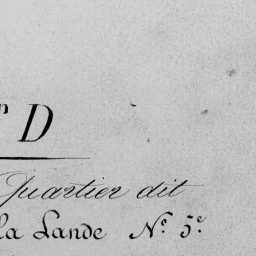 D
Quartier dit
la Lande N.º 5.e